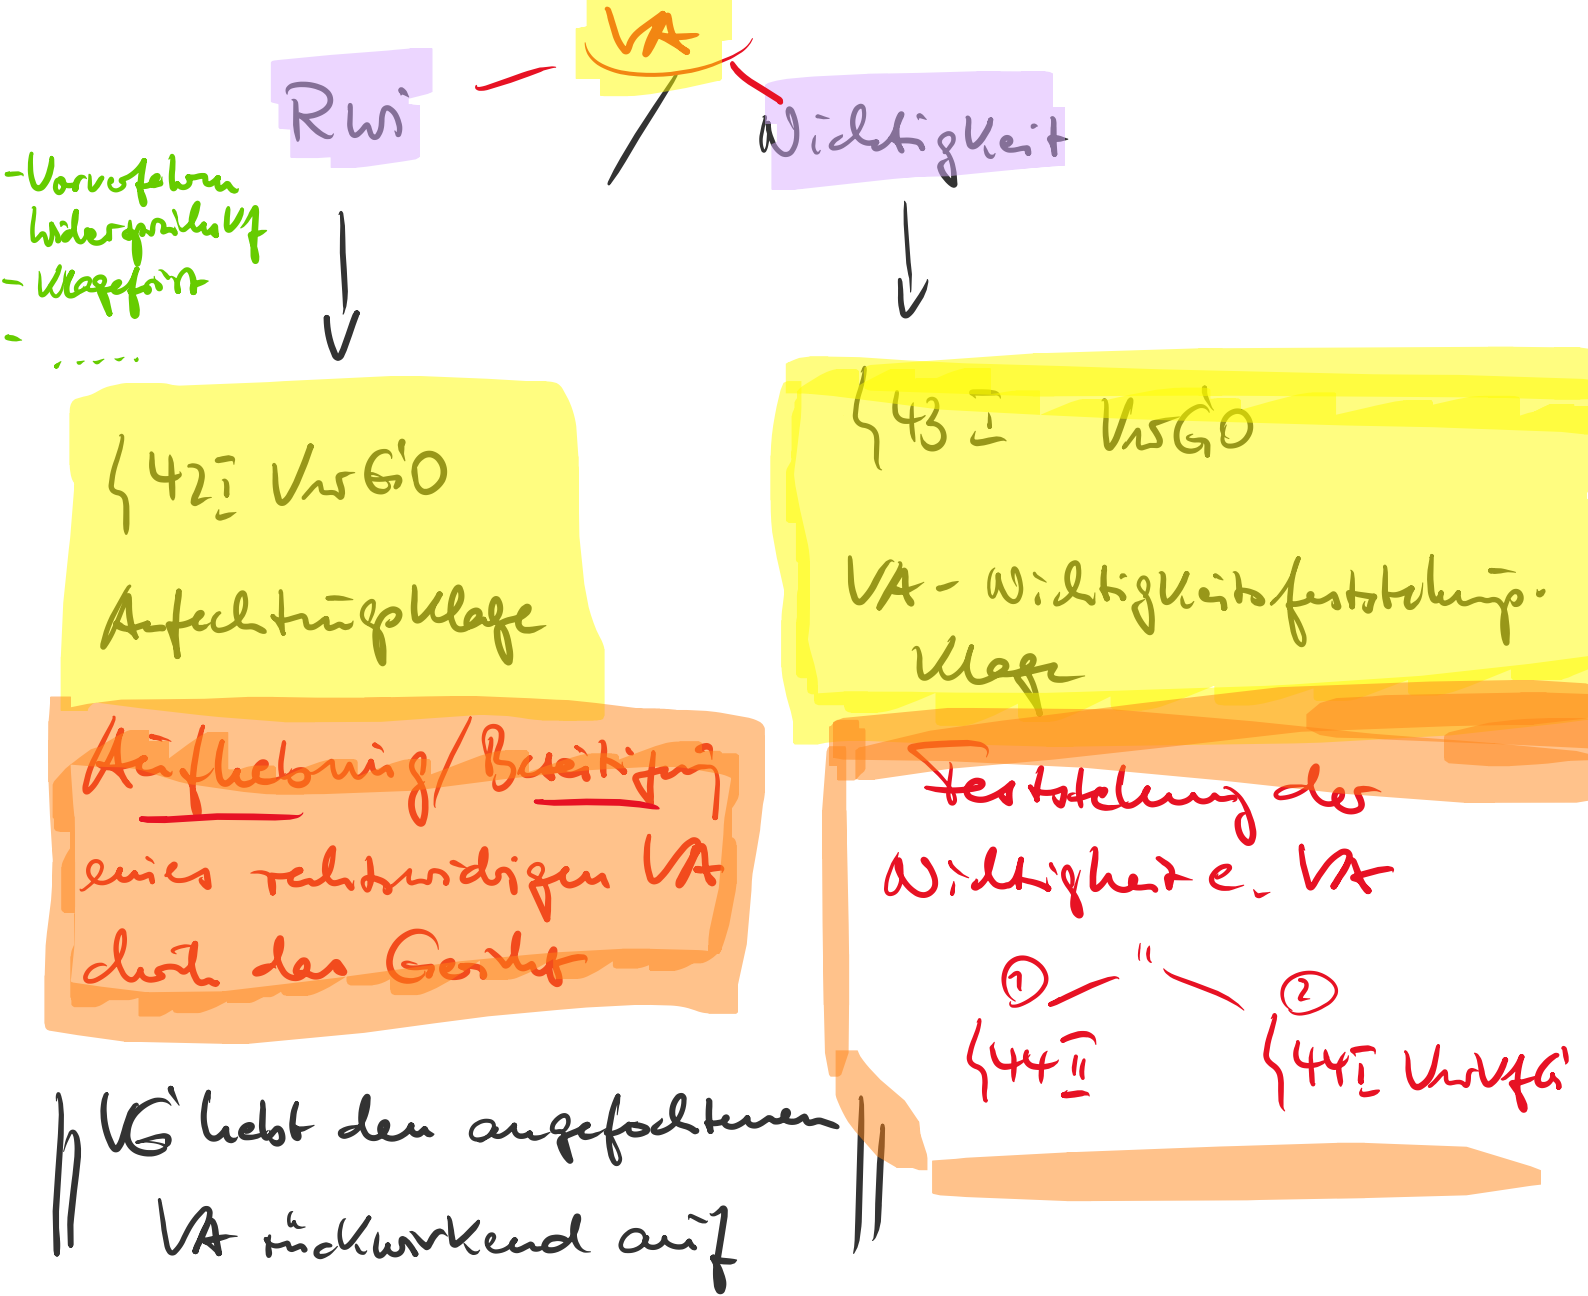 VA
RWi
Nichtigkeit
- Vorverfahren
WiderspruchsVf
- Klagefrist
- .....
§ 42 I VwGO
Anfechtungsklage
Aufhebung/Beseitigung
eines rechtswidrigen VA
durch das Gericht
VG hebt den angefochtenen
VA rückwirkend auf
§ 43 I VwGO
VA - Nichtigkeitsfeststellungs-
Klage
Feststellung der
Nichtigkeit e. VA
"
① ②
§ 44 II § 44 I VwVfG